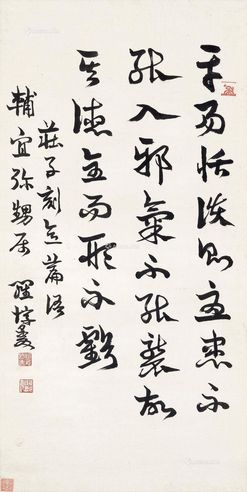 平易恬淡則憂患不
能入邪氣不能襲故
其德全而形不虧
莊子刻意篇語
輔宜彌甥屬 羅惇㬊